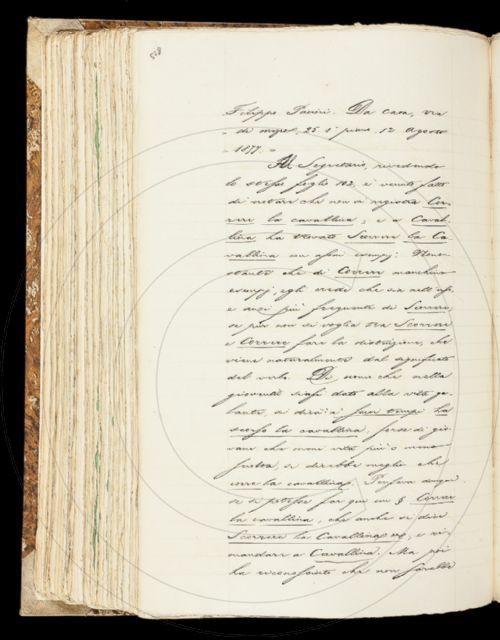 Filippo Pacini. Da casa, via
di mezzo, 25. 1° piano, 12 Agosto
1877.
Al Segretario, rivedendo
lo scorso foglio 102, è venuto fatto
di notare che non si registra Cor-
rere la cavallina, e a Caval-
lina ha trovato Scorrere la Ca-
vallina con esempj: Nono-
stante che di Correre manchino
esempj, egli crede che sia nell'uso,
e anzi più frequente di Scorrere,
se pur non si voglia tra Scorrere
e Correre fare la distinzione, che
viene naturalmente dal significato
del verbo. Di uomo che nella
gioventù siasi dato alla vita ga-
lante, si dirà: a' suoi tempi ha
scorso la cavallina; forse di gio-
vane che meni vita più o meno
si direbbe meglio che
corre la cavallina. Pensava dunque
se si potesse far qui un § Correre
la cavallina, che anche si dice
Scorrere la Cavallina, e ri-
mandare a Cavallina. Ma poi
ha riconosciuto che non sarebbe